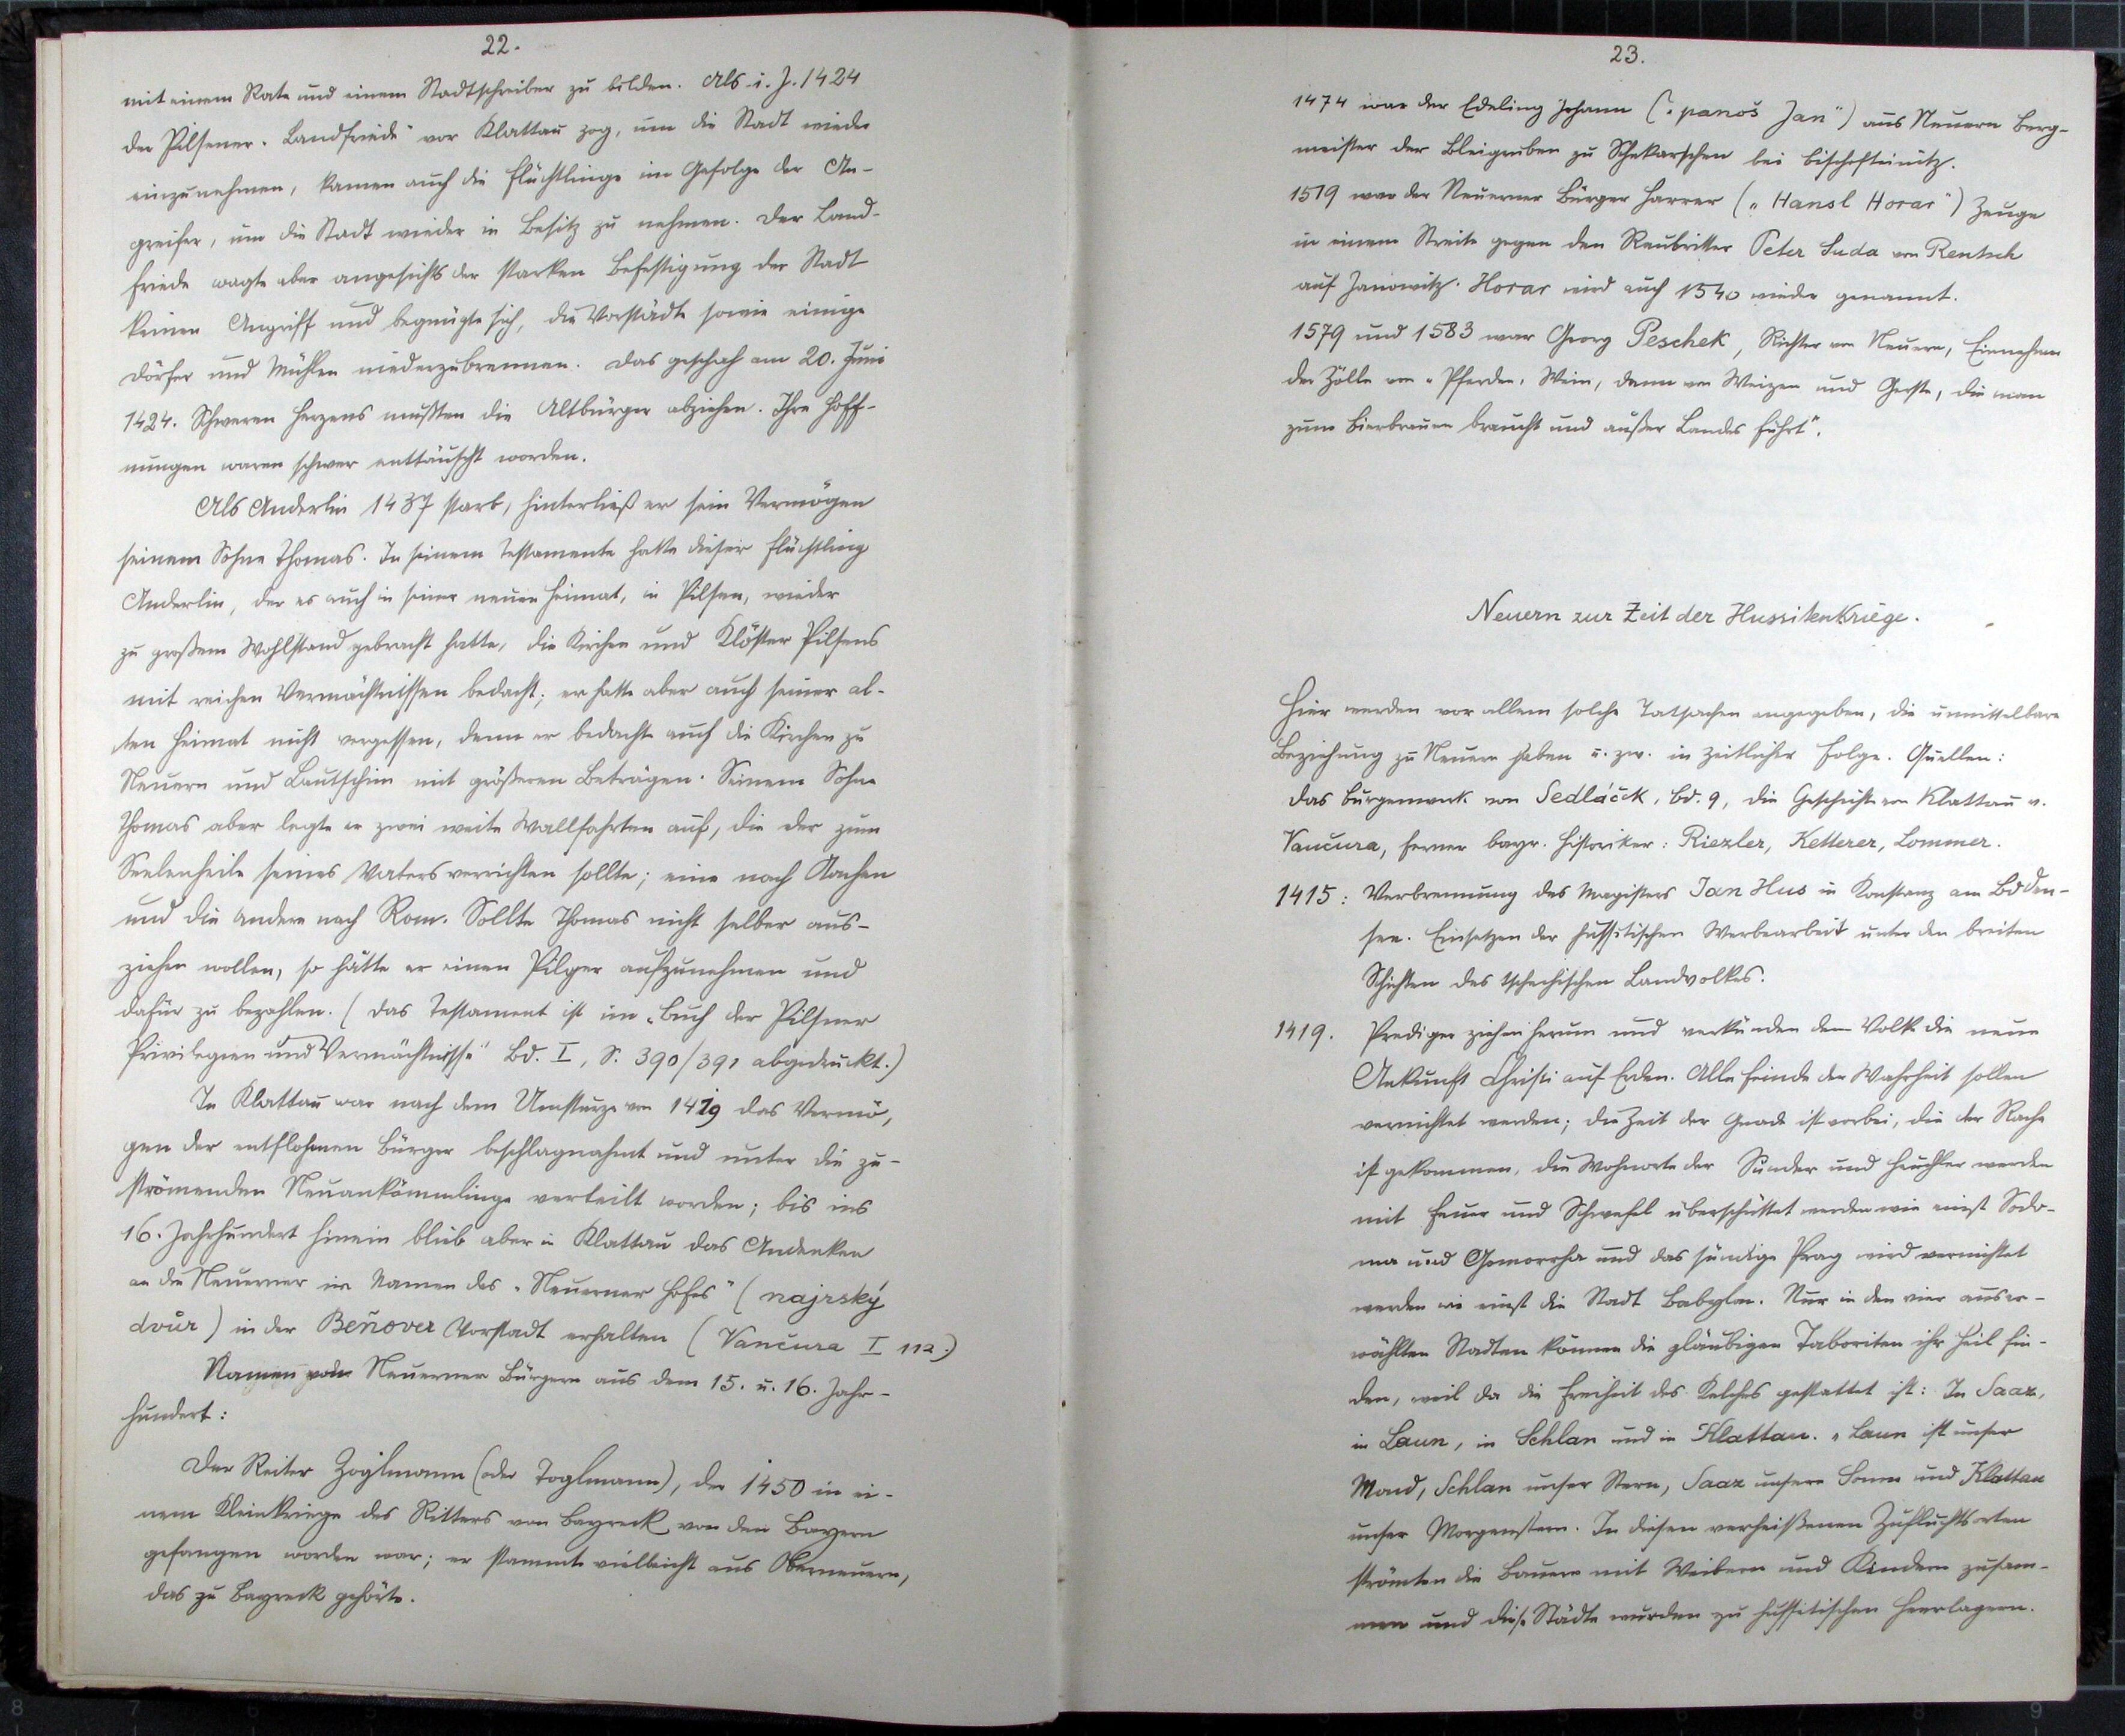 22.
mit einem Rate und einem Stadtschreiber zu bilden. Als i. J. 1424
der Pilsener „Landfriede" vor Klattau zog, um die Stadt wieder
einzunehmen, kamen auch die Flüchtlinge im Gefolge der An-
greifer, um die Stadt wieder in Besitz zu nehmen. Der Land-
friede wagte aber angesichts der starken Befestigung der Stadt
keinen Angriff und begnügte sich, die Vorstädte sowie einige
Dörfer und Mühlen niederzubrennen. Das geschah am 20. Juni
1424. Schweren Herzens mußten die Altbürger abziehen. Ihre Hoff-
nungen waren schwer enttäuscht worden.
Als Anderlin 1437 starb, hinterließ er sein Vermögen
seinem Sohne Thomas. In seinem Testamente hatte dieser Flüchtling
Anderlin, der es auch in seiner neuen Heimat, in Pilsen, wieder
zu großem Wohlstand gebracht hatte, die Kirchen und Klöster Pilsens
mit reichen Vermächtnissen bedacht; er hatte aber auch seiner al-
ten Heimat nicht vergessen, denn er bedachte auch die Kirchen zu
Neuern und Lautschim mit größeren Beträgen. Seinem Sohne
Thomas aber legte er zwei weite Wallfahrten auf, die der zum
Seelenheile seines Vaters verrichten sollte; eine nach Aachen
und die andere nach Rom. Sollte Thomas nicht selber aus-
ziehen wollen, so hätte er einen Pilger aufzunehmen und
dafür zu bezahlen. (Das Testament ist im „Buch der Pilsner
Privilegien und Vermächtnisse" Bd. I, S. 390/391 abgedruckt.)
In Klattau war nach dem Umsturze von 1419 das Vermö-
gen der entflohenen Bürger beschlagnahmt und unter die zu-
strömenden Neuankömmlinge verteilt worden; bis ins
16. Jahrhundert hinein blieb aber in Klattau das Andenken
an die Neuerner im Namen des „Neuerner Hofes" (najrský
dvůr) in der Beňover Vorstadt erhalten (Vančura I 112.)
Namen von Neuerner Bürgern aus dem 15. u. 16. Jahr-
hundert:
Der Reiter Zoglmann (oder Toglmann), der 1450 in ei-
nem Kleinkriege des Ritters von Bayreck von den Bayern
gefangen worden war; er stammte vielleicht aus Oberneuern,
das zu Bayreck gehörte.
23.
1474 war der Edeling Johann („panoš Jan") aus Neuern Berg-
meister der Bleigruben zu Schekarschen bei Bischofteinitz.
1519 war der Neuerner Bürger Harrer („Hansl Horar") Zeuge
in einem Streite gegen den Raubritter Peter Suda von Rentsch
auf Janowitz. Horar wird auch 1540 wieder genannt.
1579 und 1583 war Georg Peschek, Richter von Neuern, Einnehmer
der Zölle von „Pferden, Wein, dann von Weizen und Gerste, die man
zum Bierbrauen braucht und außer Landes führt".
Neuern zur Zeit der Hussitenkriege.
Hier werden vor allem solche Tatsachen angegeben, die unmittelbare
Beziehung zu Neuern haben u. zw. in zeitlicher Folge. Quellen:
Das Burgenwerk von Sedláček, Bd. 9, die Geschichte von Klattau v.
Vančura, ferner bayr. Historiker: Riezler, Ketterer, Lommer.
1415: Verbrennung des Magisters Jan Hus in Konstanz am Boden-
see. Einsetzen der hussitischen Werbearbeit unter den breiten
Schichten des tschechischen Landvolkes.
1419. Prediger ziehen herum und verkünden dem Volk die neue
Ankunft Christi auf Erden. Alle Feinde der Wahrheit sollen
vernichtet werden; die Zeit der Gnade ist vorbei, die der Rache
ist gekommen, die Wohnorte der Sünder und Heuchler werden
mit Feuer und Schwefel überschüttet werden wie einst Sodo-
ma und Gomorrha und das sündige Prag wird vernichtet
werden wie einst die Stadt Babylon. Nur in den vier auser-
wählten Stadten können die gläubigen Taboriten ihr Heil fin-
den, weil da die Freiheit des Kelches gestattet ist: In Saaz,
in Laun, in Schlan und in Klattau. „Laun ist unser
Mond, Schlan unser Stern, Saaz unsere Sonne und Klattau
unser Morgenstern. In diesen verheißenen Zufluchtsorten
strömten die Bauern mit Weibern und Kindern zusam-
men und diese Städte wurden zu hussitischen Heerlagern.